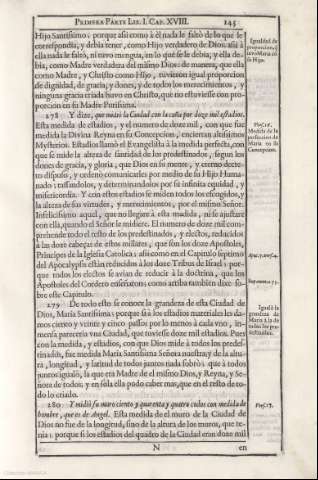 PRIMERA PARTE LIB. I. CAP. XVIII. 145
Hijo Santissimo: porque assi como à èl nada le faltò de lo que le
correspondia, y debia tener, como Hijo verdadero de Dios. assi à
ella nada le faltò, ni tuvo mengua, en lo que se le debia; y ella de-
bia, como Madre verdadera del mismo Dios: de manera, que ella
como Madre, y Christo como Hijo, tuvieron igual proporcion
de dignidad, de gracia, y dones, y de todos los merecimientos, y
ninguna gracia criada huvo en Christo, que no estuviesse con pro-
porcion en su Madre Purissima.
278 Y dize, que midiò la Ciudad con la caña por doze mil estadios.
Esta medida de estadios, y el numero de doze mil, con que fue
medida la Divina Reyna en su Concepcion, encierran altissimos
Mysterios. Estadios llamò el Evangelista à la medida perfecta, con
que se mide la altura de santidad de los predestinados, segun los
dones de gracia, y gloria, que Dios en su mente, y eterno decre-
to dispuso, y ordenò comunicarles por medio de su Hijo Huma-
nado; tassandolos, y determinandolos por su infinita equidad, y
misericordia. Y con estos estadios se miden todos los escogidos, y
la altura de sus virtudes, y merecimientos, por el mismo Señor.
Infelicissimo aquel, que no llegàre à esta medida, ni se ajustàre
con ella, quando el Señor le midiere. El numero de doze mil com-
prehende todo el resto de los predestinados, y electos, reducidos
à las doze cabeças de estos millares, que son los doze Apostoles,
Principes de la Iglesia Catholica; assi como en el Capitulo septimo
del Apocalypsis estàn reducidos à los doze Tribus de Israel; por-
que todos los electos se avian de reducir à la doctrina, que los
Apostoles del Cordero enseñaron; como arriba tambien dixe so-
bre este Capitulo.
279 De todo esto se conoce la grandeza de esta Ciudad de
Dios, Maria Santissima; porque si à los estadios materiales les da-
mos ciento y veinte y cinco passos por lo menos à cada vno, in-
mensa pareceria vna Ciudad, que tuviesse doze mil estadios. Pues
con la medida, y estadios, con que Dios mide à todos los predes-
tinados, fue medida Maria Santissima Señora nuestra; y de la altu-
ra, longitud, y latitud de todos juntos nada sobrò; que à todos
juntos igualò, la que era Madre de el mismo Dios, y Reyna, y Se-
ñora de todos; y en sola ella pudo caber mas, que en el resto de to-
do lo criado.
280 Y midiò su muro ciento y quarenta y quatro codos con medida de
hombre, que es de Angel. Esta medida de el muro de la Ciudad de
Dios no fue de la longitud, sino de la altura de los muros, que te-
nia; porque si los estadios del quadro de la Ciudad eran doze mil
N en
Igualdad de
proporcion, q̃
tuvo Maria cõ
su Hijo.
Medida de la
perfeccion de
Maria en su
Concepcion.
Igualò la
grandeza de
Maria à la de
todos los pre-
destinados.